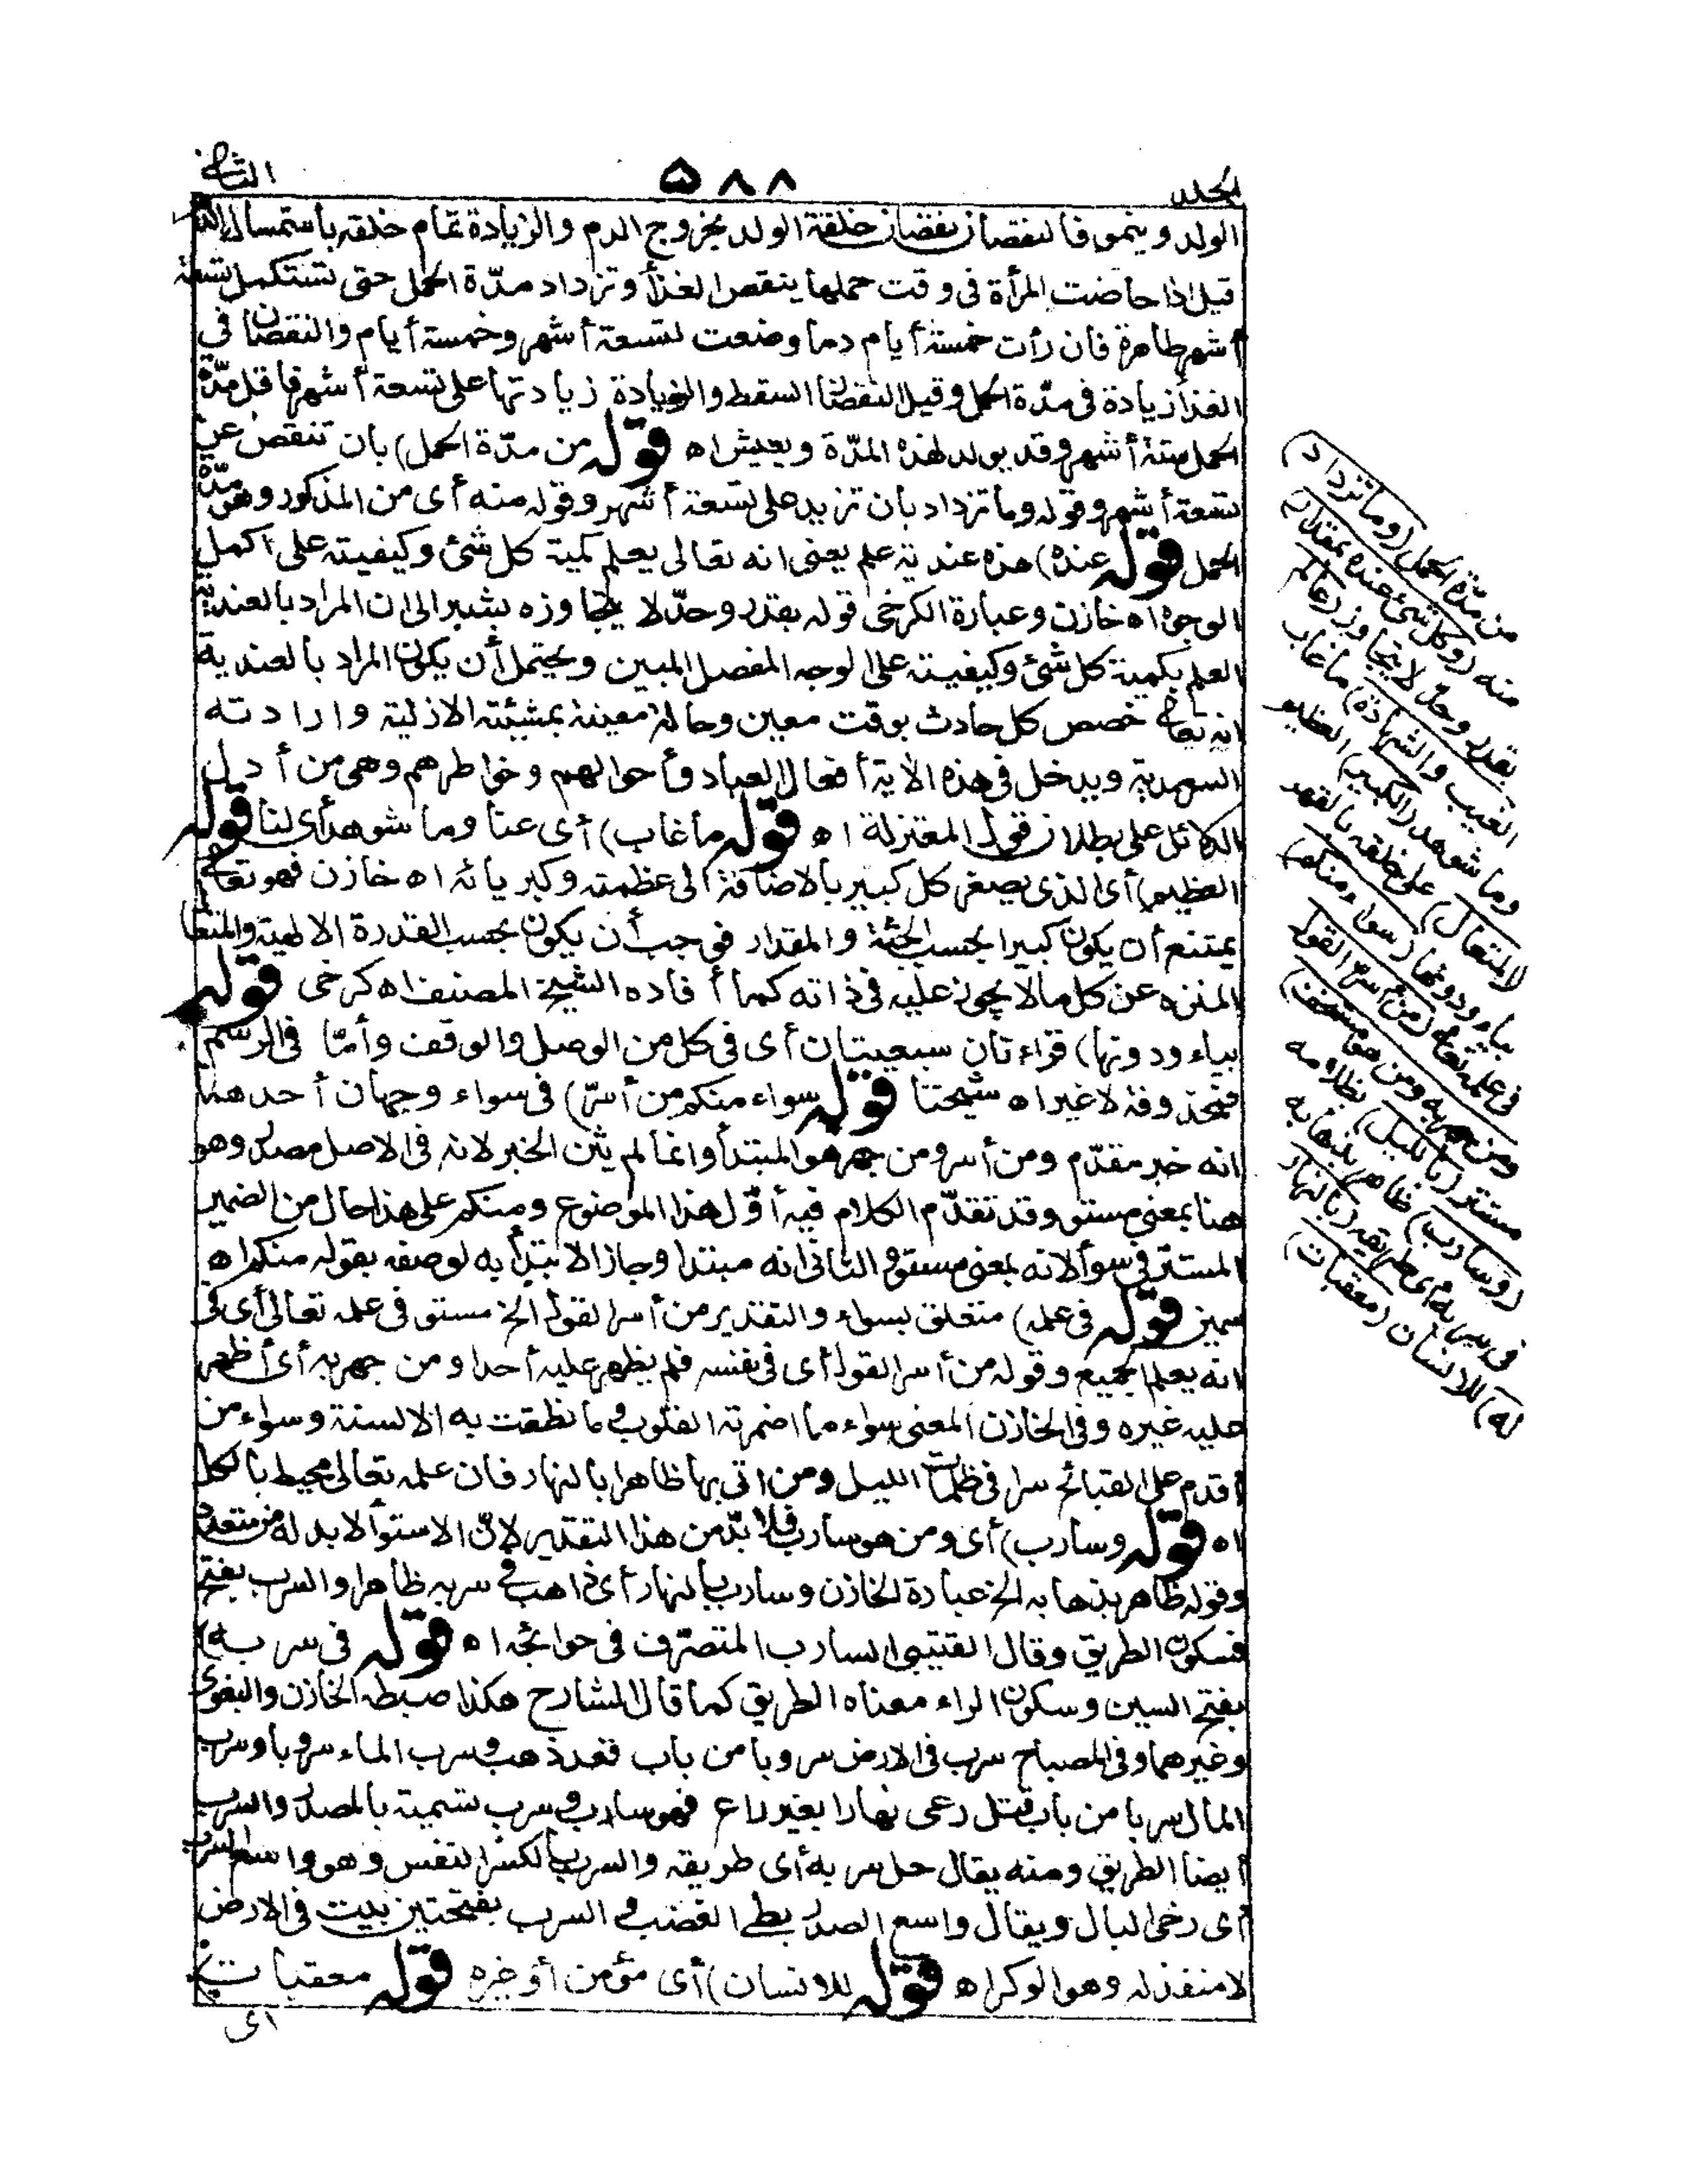 المجلد
٥٨٨
الثاني
الولد وينمو فالنقصان نقصان خلقة الولد بخروج الدم والزيادة تمام خلقه باستمساك الدم
قيل اذا حاضت المرأة فى وقت حملها ينقص الغذأ وتزداد مدّة الحمل حتى تستكمل تسعة
أشهر طاهرة فان رأت خمسة أيام دما وضعت لتسعة أشهر وخمسة أيام والنقصان فى
الغذأ زيادة فى مدّة الحمل وقيل النقصان السقط والزيادة زيادتها على تسعة أشهر فاقل مدّة
الحمل ستة أشهر وقد يولد لهذه المدّة ويعيش اه قوله من مدّة الحمل) بان تنقص عن
تسعة أشهر وقوله وما تزداد بان تزيد على تسعة أشهر وقوله منه أى من المذكور وهو مدّة
الحمل قوله عنده) هذه عندية علم يعنى انه تعالى يعلم كمية كل شئ وكيفيته على أكمل
الوجوه اه خازن وعبارة الكرخى قوله بقدر وحدّ لا يتجاوزه يشير الى ان المراد بالعندية
العلم بكمية كل شئ وكيفيته على الوجه المفصل المبين ويحتمل أن يكون المراد بالعندية
انه تعالى خصص كل حادث بوقت معين وحالة معينة بمشيئته الازلية وارادته
السرمدية ويدخل فى هذه الاٰية أفعال العباد وأحوالهم وخواطرهم وهى من أدل
الدلائل على بطلان قول المعتزلة اه قوله ما غاب) أى عنا وما شوهد أى لنا قوله
العظيم) أى الذى يصغر كل كبير بالاضافة الى عظمته وكبريائه اه خازن فهو تعالى
يمتنع أن يكون كبيرا بحسب الجثة والمقدار فوجب أن يكون بحسب القدرة الالهية والمتعال
المنزه عن كل ما لا يجوز عليه فى ذاته كما أفاده الشيخ المصنف اه كرخى قوله
بياء ودونها) قراءتان سبعيتان أى فى كل من الوصل والوقف وأمّا فى الرسم
فمحذوفة لا غير اه شيخنا قوله سواء منكم من أسرّ) فى سواء وجهان أحدهما
انه خبر مقدّم ومن أسر ومن جهر هو المبتدأ وانما لم يثن الخبر لانه فى الاصل مصدر وهو
هنا بمعنى مستو وقد تقدّم الكلام فيه أوّل هذا الموضوع ومنكم على هذا حال من الضمير
المستتر فى سوأ لانه بمعنى مستو والثانى انه مبتدا وجاز الابتدأ به لوصفه بقوله منكم اه
سمين قوله فى علمه) متعلق بسواء والتقدير من أسر القول الخ مستو فى علمه تعالى أى فى
انه يعلم الجميع وقوله من أسر القول أى فى نفسه فلم يظهر عليه أحدا ومن جهر به أى أظهر
عليه غيره وفى الخازن المعنى سواء ما اضمرته القلوب وما نطقت به الالسنة وسواء من
أقدم على القبائح سرا فى ظلمات الليل ومن اتى بها ظاهرا بالنهار فان علمه تعالى محيط بالكل
اه قوله وسارب) أى ومن هو سارب فلا بدّ من هذا التقدير لانّ الاستوأ لا بد له من متعدد
وقوله ظاهر بذهابه الخ عبارة الخازن وسارب بالنهار أى ذاهب فى سربه ظاهرا والسرب بفتح
فسكون الطريق وقال القتيبى السارب المتصرّف فى حوائجه اه قوله فى سربه)
بفتح السين وسكون الراء معناه الطريق كما قال الشارح هكذا ضبطه الخازن والبغوى
وغيرهما وفى المصباح سرب فى الارض سروبا من باب قعد ذهب وسرب الماء سروبا وسرب
المال سربا من باب قتل رعى نهارا بغير راع فهو سارب وسرب تسمية بالمصدر والسرب
أيضا الطريق ومنه يقال خل سربه أى طريقه والسرب بالكسر النفس وهو واسع السرب
أى رخى البال ويقال واسع الصدر بطئ الغضب والسرب بفتحتين بيت فى الارض
لا منفذ له وهو الوكر اه قوله للانسان) أى مؤمن أو غيره قوله معقبات)
أى
من مدّة الحمل (وما تزداد)
منه (وكل شئ عنده بمقدار)
بقدر وحدّ لا يتجاوزه (عالم
الغيب والشهادة) ما غاب
وما شوهد (الكبير) العظيم
(المتعال) على خلقه بالقهر
بياء ودونها (سواء منكم)
فى علمه تعالى (من أسرّ القول
ومن جهر به ومن هو مستخف)
مستتر (بالليل) بظلامه
(وسارب) ظاهر بذهابه
فى سربه أى طريقه (بالنهار
له) للانسان (معقبات)